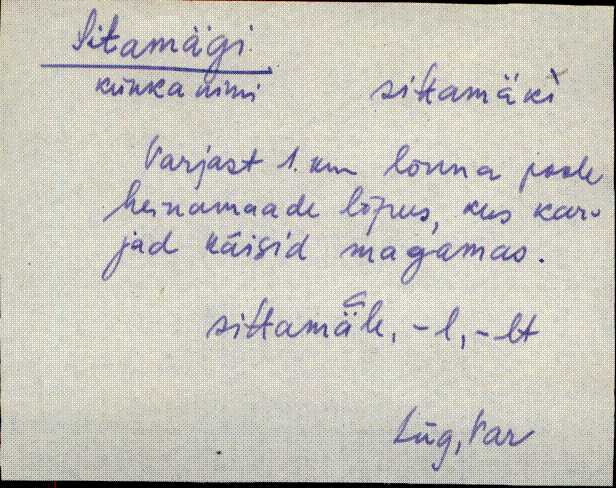 Sitamägi.
künka nimi
sittamäkì
Varjast 1. km lõuna poole
heinamaade lõpus, kus kar-
jad käisid magamas.
sittamäle, -l, -lt
Lüg, Var